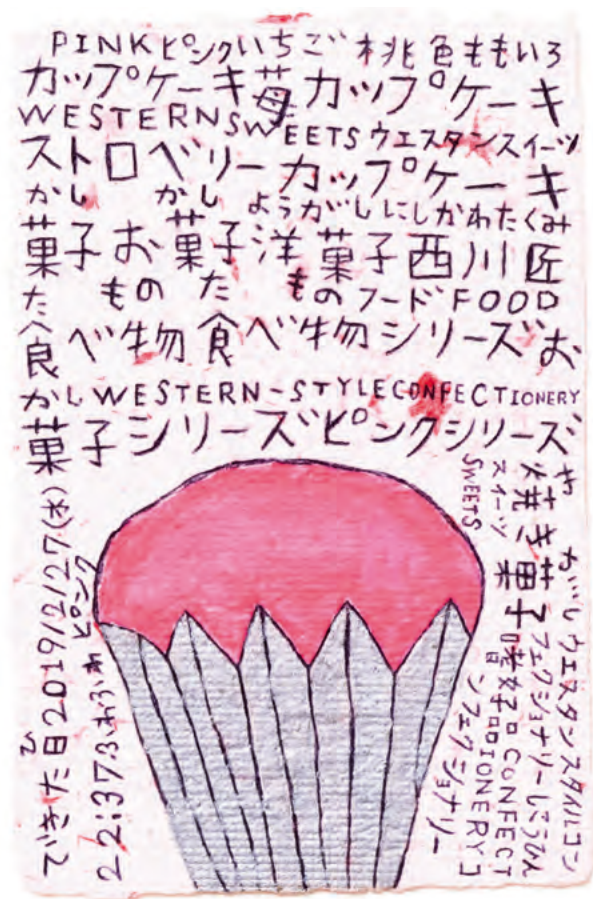 PINKピンクいちご桃色ももいろ
カップケーキ苺カップケーキ
WESTERNSWEETSウエスタンスイーツ
ストロベリーカップケーキ
かし かし ようがしにしかわたくみ
菓子お菓子洋菓子西川匠
た もの た もの フードFOOD
食べ物食べ物シリーズお
かしWESTERN-STYLECONFECTIONERY
菓子シリーズピンクシリーズ
SWEETS
スイーツ
焼き菓子
がいしウエスタンスタイルコン
フェクショナリーしこうひん
嗜好品CONFECT
IONERYコ
ンフェクショナリー
できた日2019/2/27(水)
22:37ふわふわ
ピンク